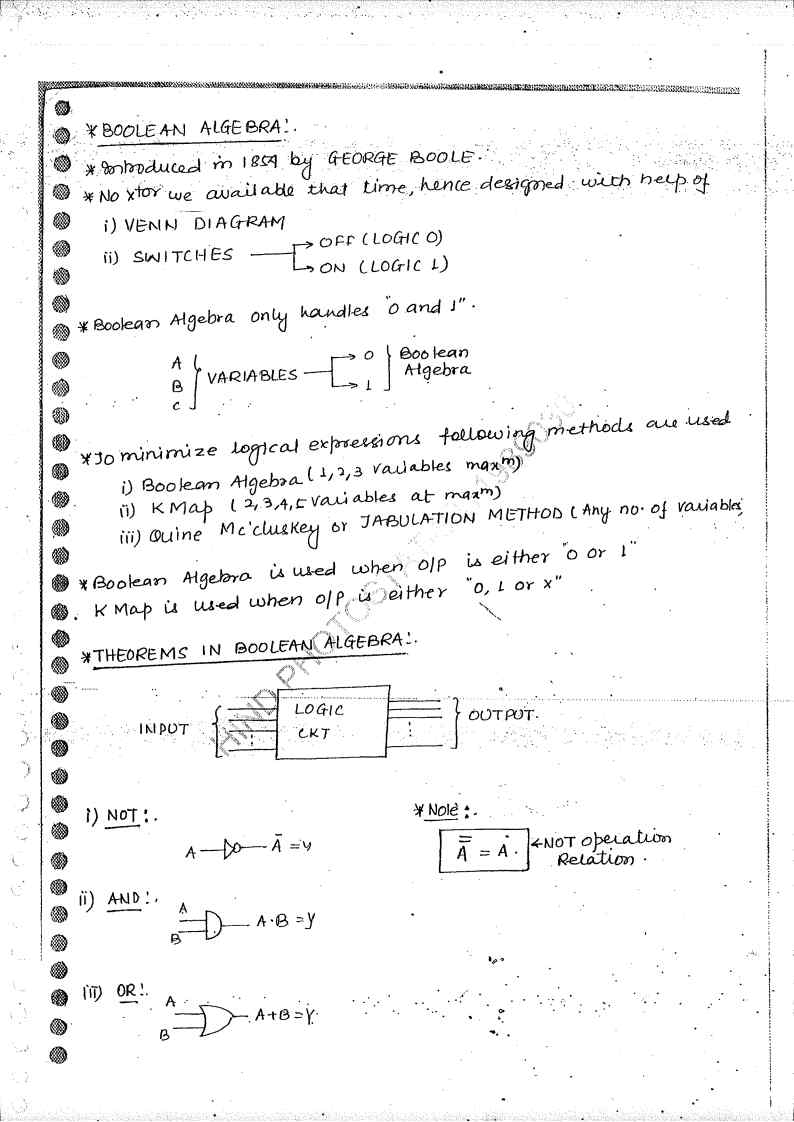 * BOOLEAN ALGEBRA:.
* Introduced in 1854 by GEORGE BOOLE.
* No xtor we available that time, hence designed with help of
i) VENN DIAGRAM
ii) SWITCHES → OFF (LOGIC 0)
→ ON (LOGIC 1)
* Boolean Algebra only handles "0 and 1".
A
B
C
VARIABLES
→ 0
→ 1
Boolean
Algebra
* To minimize logical expressions following methods are used
i) Boolean Algebra (1,2,3 variables maxm)
ii) K Map (2,3,4,5 variables at maxm)
iii) Quine Mc'cluskey or TABULATION METHOD (Any no. of variables
* Boolean Algebra is used when o/p is either "0 or 1"
. K Map is used when o/p is either "0, 1 or x"
* THEOREMS IN BOOLEAN ALGEBRA:.
INPUT
LOGIC
CKT
OUTPUT.
i) NOT:.
A Ā = y
* Note:.
A̿ = A. ← NOT operation
Relation.
ii) AND:.
A
B
A·B = y
iii) OR:.
A
B
A+B = Y.
HIND PHOTOSTAT